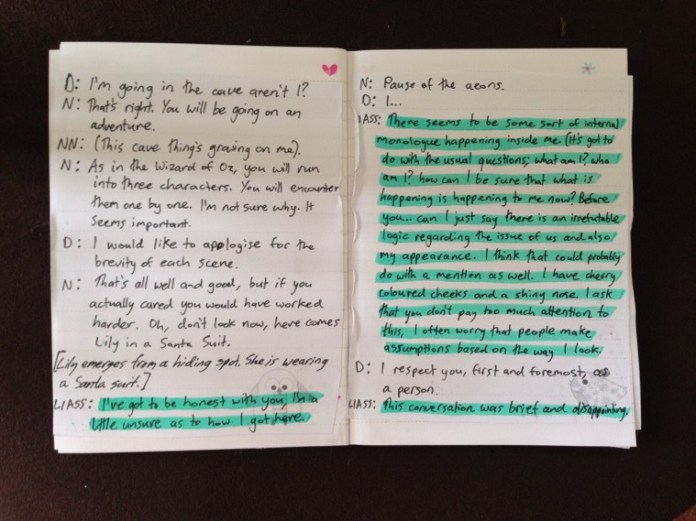 D: I'm going in the cave aren't I?
N: That's right. You will be going on an
adventure.
NN: (This cave thing's growing on me).
N: As in the Wizard of Oz, you will run
into three characters. You will encounter
them one by one. I'm not sure why. It
seems important.
D: I would like to apologise for the
brevity of each scene.
N: That's all well and good, but if you
actually cared you would have worked
harder. Oh, don't look now, here comes
Lily in a Santa Suit.
[Lily emerges from a hiding spot. She is wearing
a Santa suit.]
LIASS: I've got to be honest with you, I'm a
little unsure as to how I got here.
N: Pause of the aeons.
D: I...
LIASS: There seems to be some sort of internal
monologue happening inside me. (It's got to
do with the usual questions; what am I? who
am I? how can I be sure that what is
happening is happening to me now? Before
you... can I just say there is an irrefutable
logic regarding the issue of us and also
my appearance. I think that could probably
do with a mention as well. I have cherry
coloured cheeks and a shiny nose. I ask
that you don't pay too much attention to
this, I often worry that people make
assumptions based on the way I look.
D: I respect you, first and foremost, as
a person.
LIASS: This conversation was brief and disappointing.